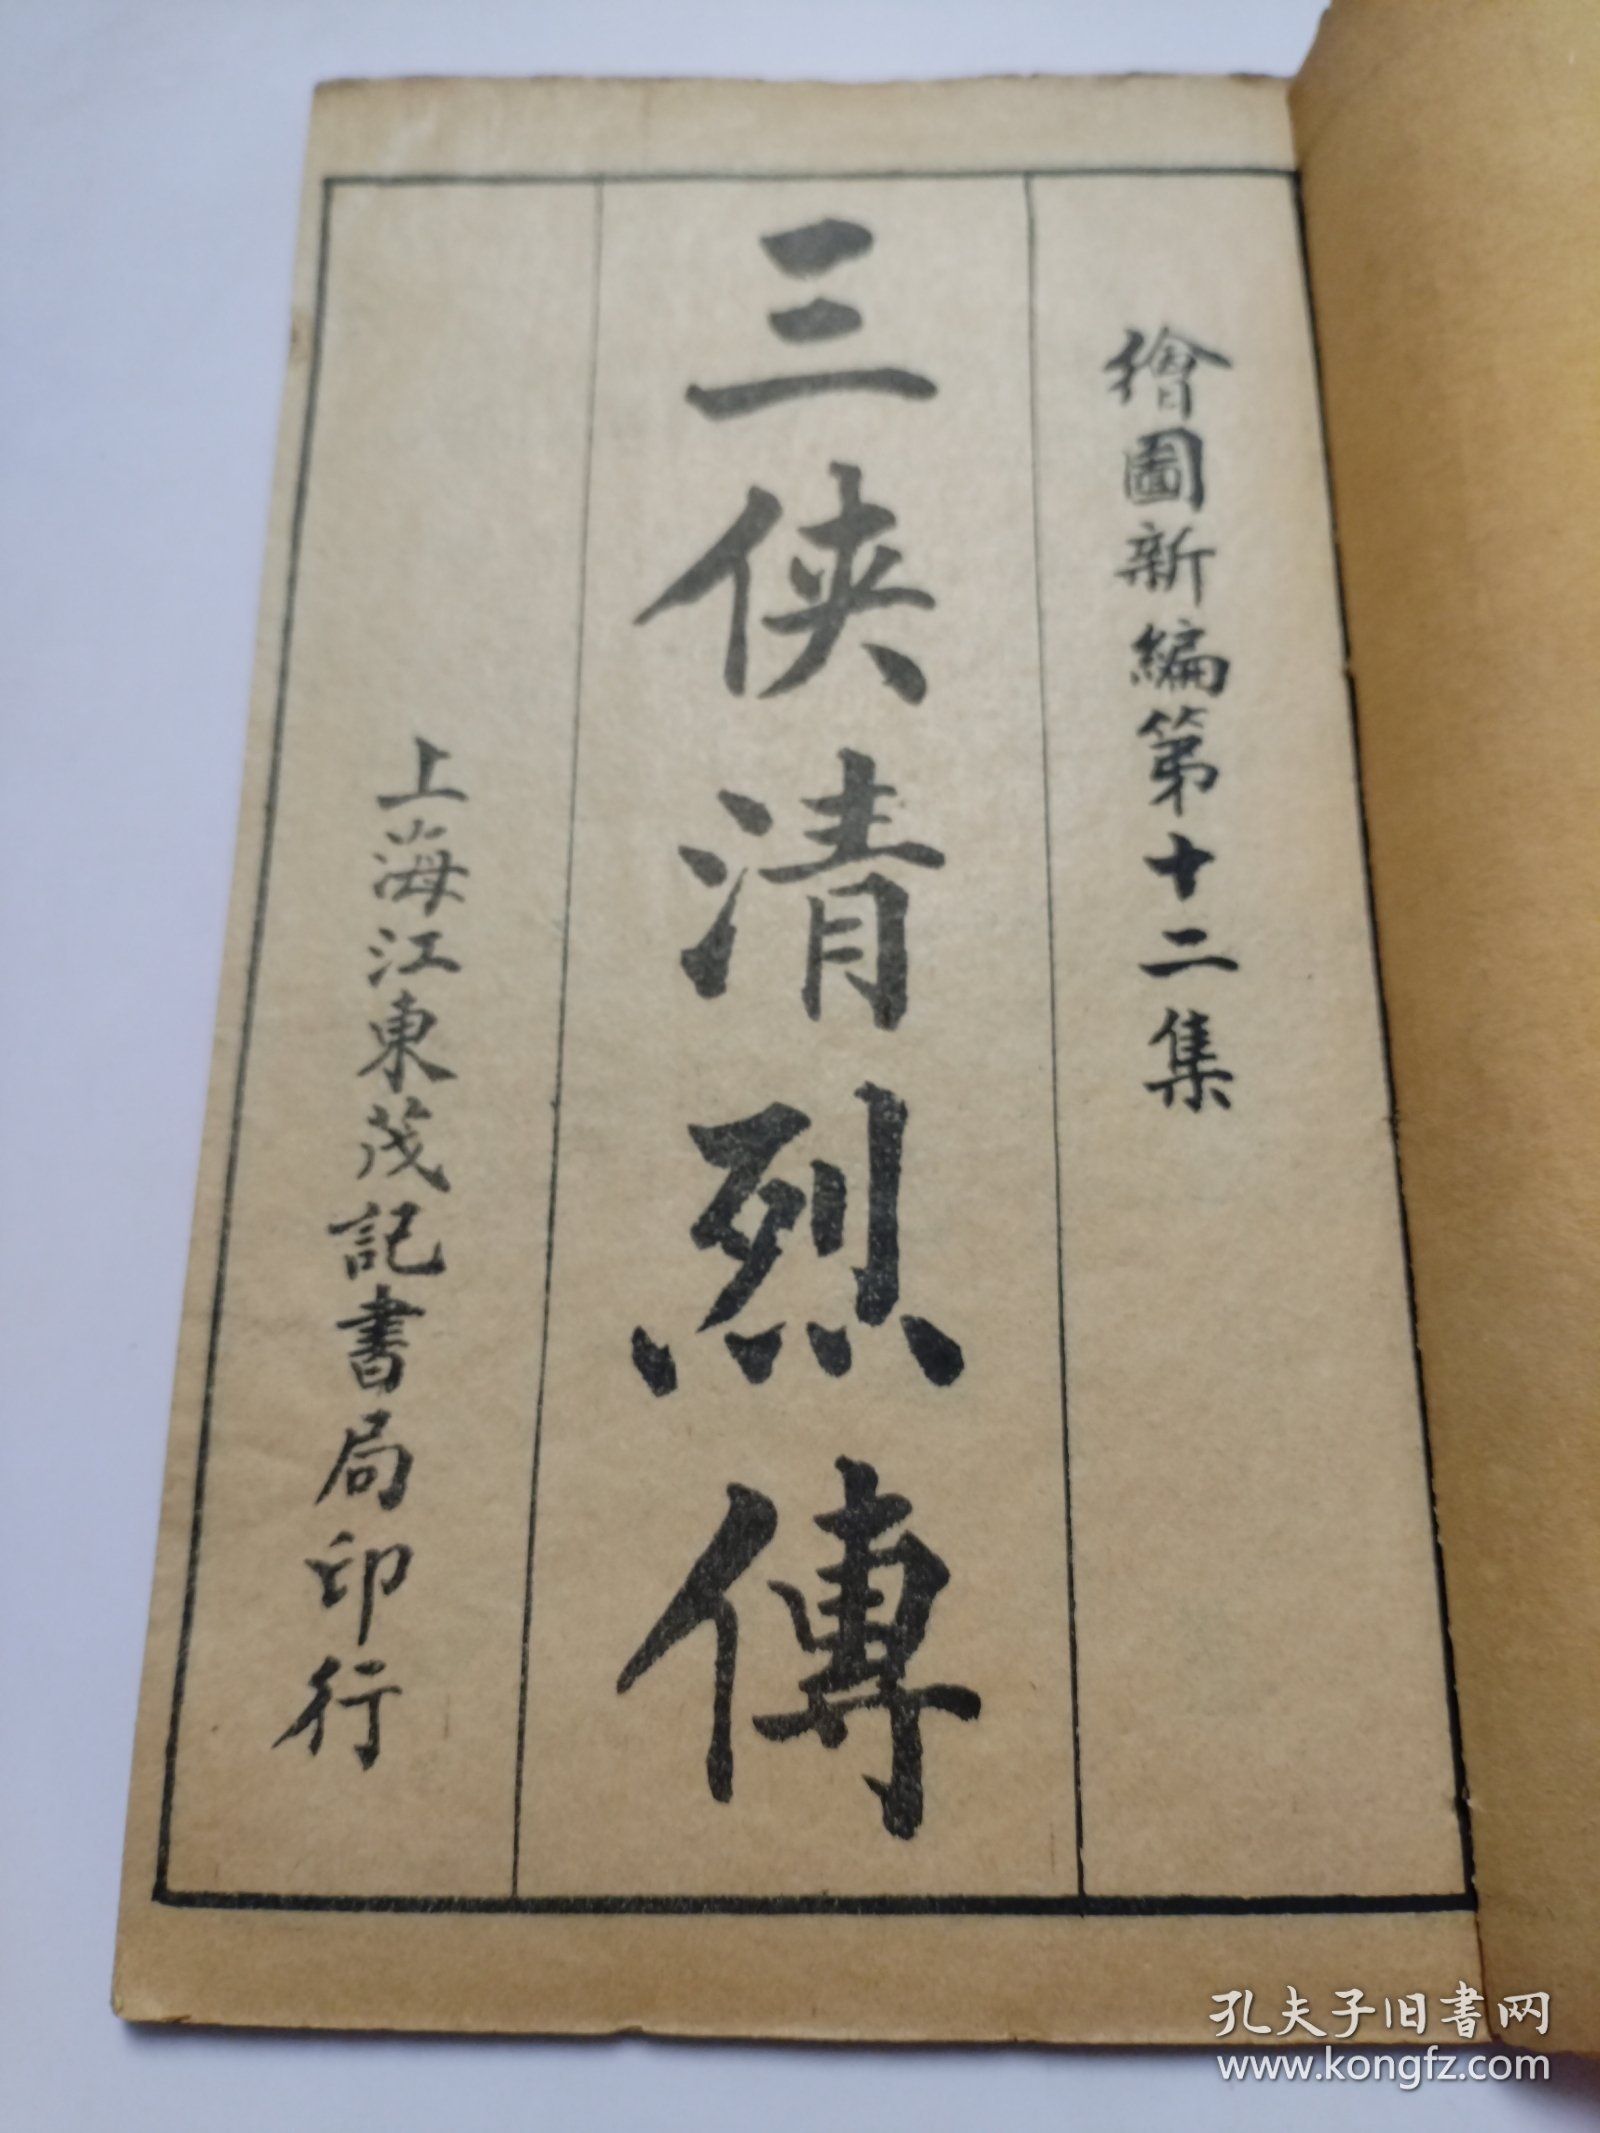 繪圖新編第十二集
三俠清烈傳
上海江東茂記書局印行
孔夫子旧书网
www.kongfz.com